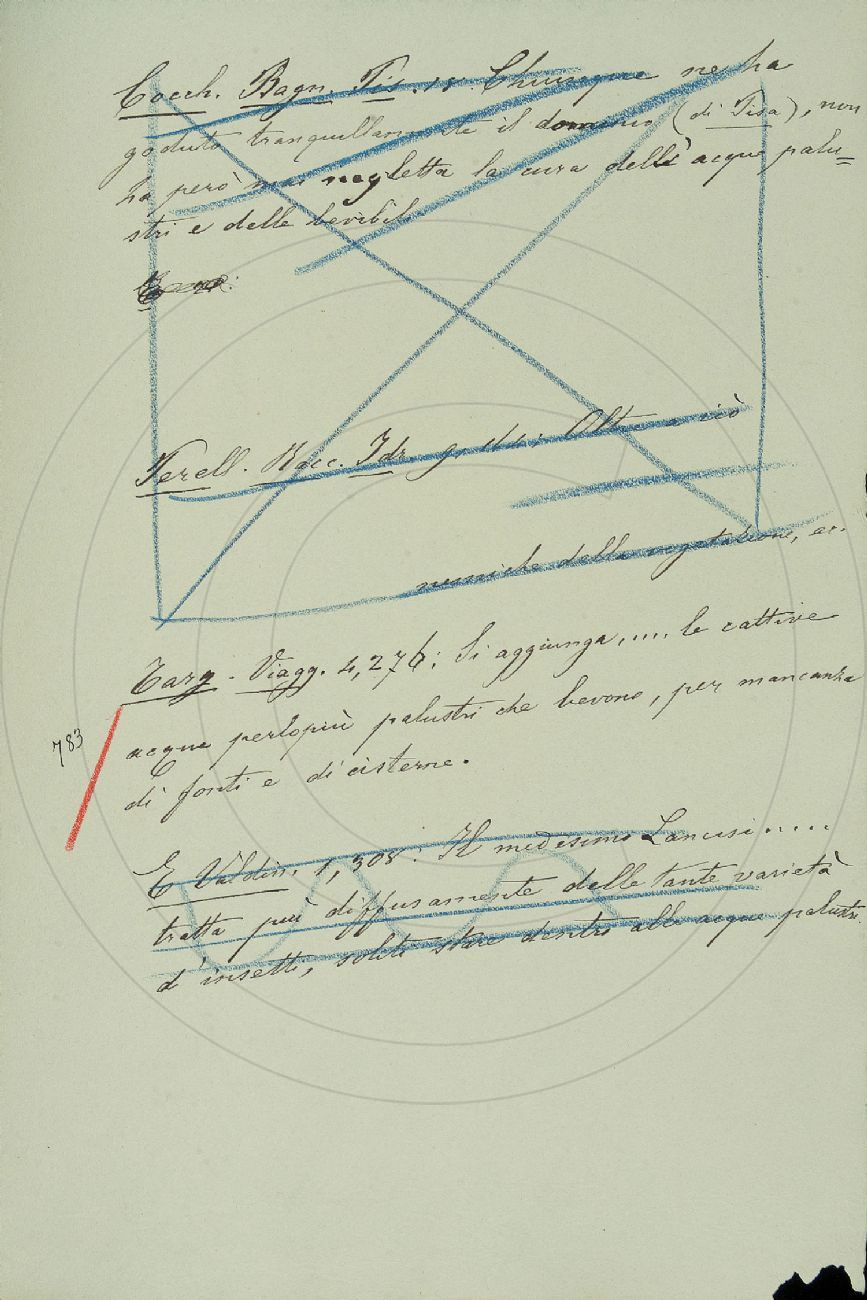 Cocch. Bagn. Pis. 18. Chiunque ne ha
goduto tranquillamente il dominio (di Pisa), non
ha però mai negletta la cura delle acque palu=
stri e delle bevibili
Perell. Racc. Idr. g. Oltre a ciò
nemiche della vegetazione, ec.
Targ. Viagg. 4, 276: Si aggiunga..... le cattive
783
acque perlopiù palustri che bevono, per mancanza
di fonti e di cisterne.
E Valdin. 1, 308. Il medesimo Lancisi.....
tratta più diffusamente delle tante varietà
d'insetti, soliti stare dentro alle acque palustri.